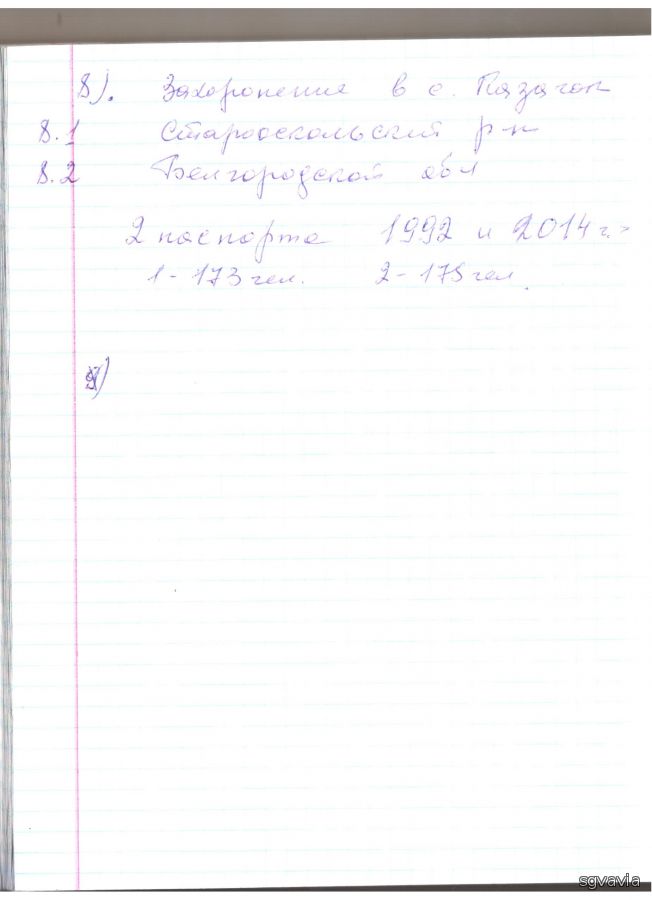 8). Захоронение в с. Казачок
8.1 Старооскольский р-н
8.2 Белгородской обл
2 паспорта 1992 и 2014 г.г
1 - 173 чел. 2 - 175 чел.
9)
sgvavia